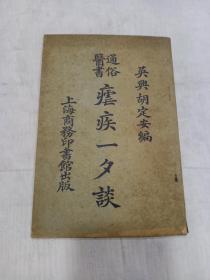 吴興胡定安編
通俗醫書
瘧疾一夕談
上海商務印書館出版